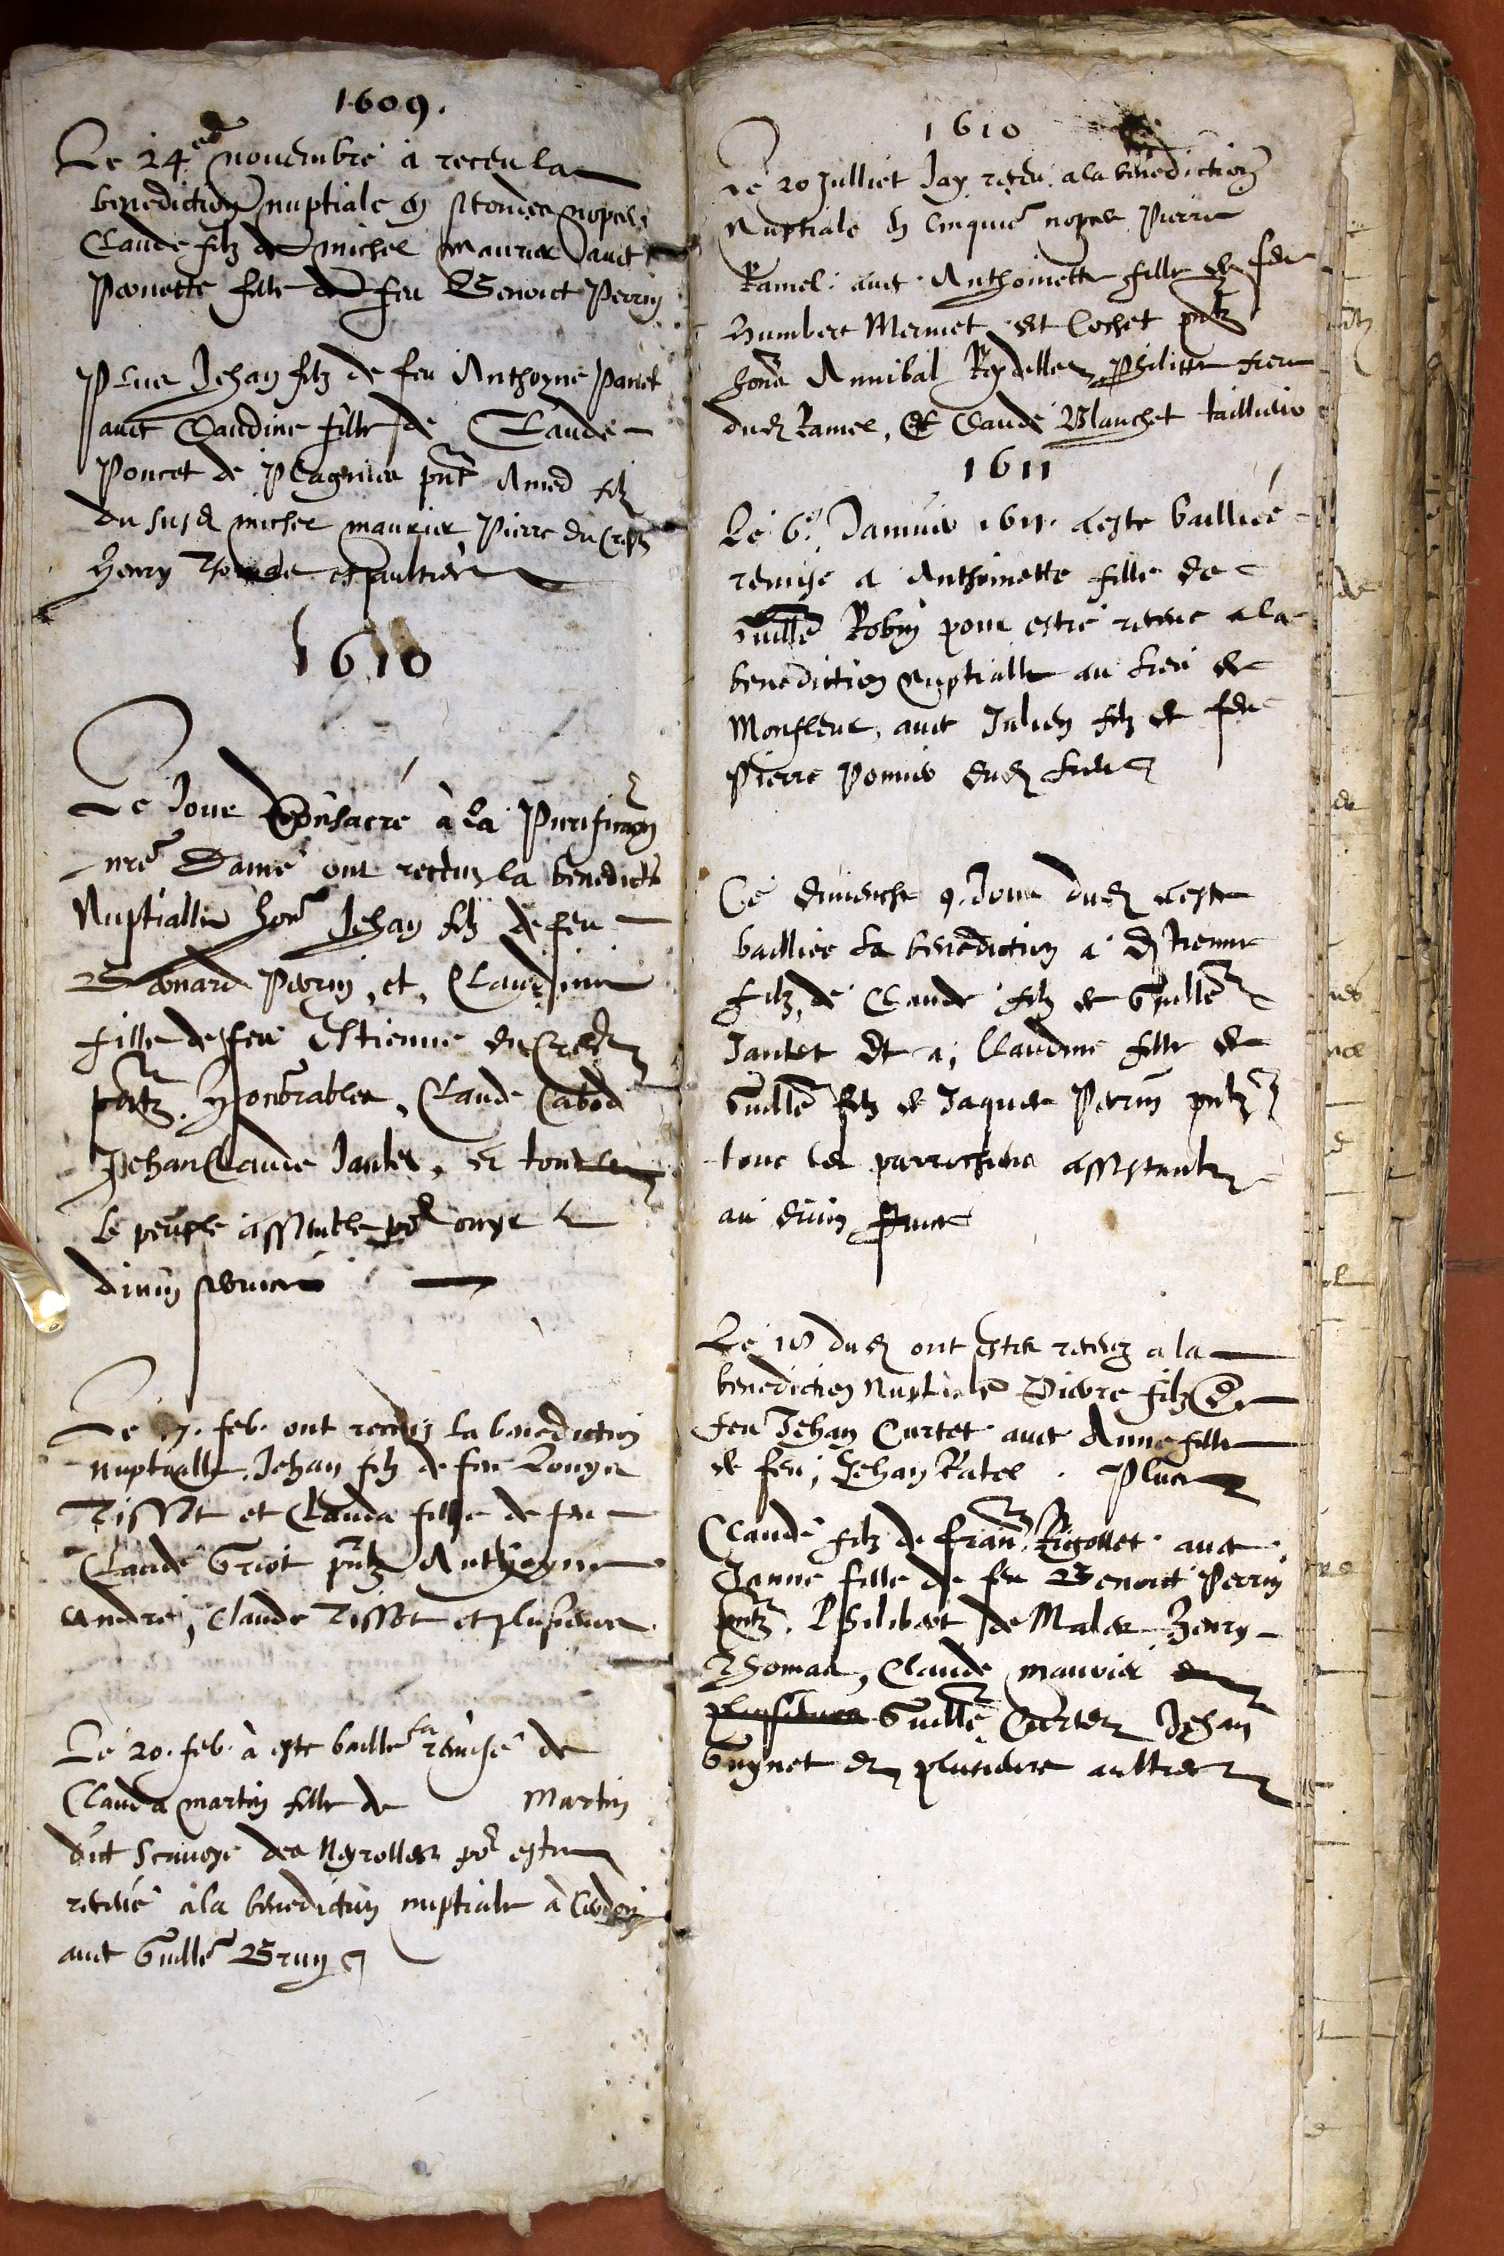 1609.
Le 24e novembre a receu la
benediction nuptiale en secondes nopces
Claude filz de michel maurier avec
Pernette fille de feu Benoict Perrin
Plus Jehan filz de feu Anthoyne Panet
avec Claudine fille de Claude
Poncet de Plagnies pnt Amed filz
du susd michel maurier Pierre du Crest
Henry Thomas et aultres
1610
Le Jour consacré à la Purification
nre Dame ont receuz la benedict
Nuptialle hone Jehan filz de feu
Bernard Perrin, et, Claudine
fille de feu Estienne du Crest
pntz. Honorables, Claude Cabod
Jehan Claude Jantet, et tout
le peuple assemble por ouyr
divin service
Le 7. feb. ont receuz la benediction
nuptialle Jehan filz de feu Louys
Tissot et Clauda fille de feu
Claude Griot pntz Anthoyne
Andre, Claude Tissot et plusieurs
Le 20. feb. à este baille la remise de
Clauda martin fille de Martin
dict des Neyrolles por estre
receue a la benediction nuptiale à Cerdon
avec Guille Brun
1610
Le 20 Julliet Jay receu a la benediction
Nuptiale en cinquie nopces Pierre
Ramel. avec Anthoinette fille de feu
Humbert Mermet dit Cochet pntz
hone Annibal Reydellet, Philippe frere
dud Ramel, Et Claude Blanchet taillieur
1611
Le 6e Janvier 1611. a este bailliée
remise a Anthoinette fille de
Guille Robin pour estre receue a la
benediction nuptialle au lieu de
Monfleur, avec Julien filz de feu
Pierre Pomier dud lieu
Ce dimenche 9. Jour dud a este
bailliee la benediction a Estienne
filz, de Claude filz de Guille
Jantet Et a, Claudine fille de
Guille filz de Jaques Perrin pntz
tous les parrochiens assistantz
au divin service
Le 18 dud ont estes receuz a la
benediction Nuptiale Pierre filz de
feu Jehan Curtet avec Anne fille
de feu, Jehan Ratel. Plus
Claude filz de Fran Rigollet avec
Janne fille de feu Benoict Perrin
pntz. Philibert de Males Henry
Thomas, Claude maurier et
plusieurs Guille Curtet Jehan
Guynet et plusieurs aultres